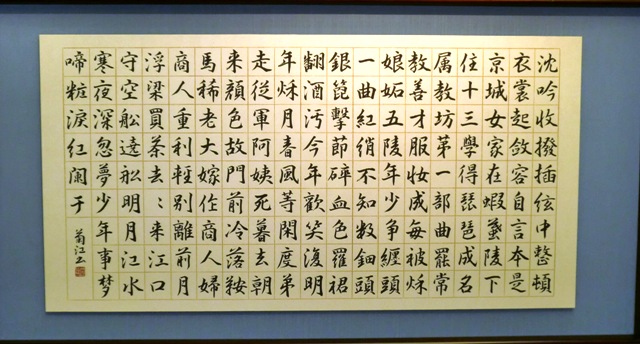 沈吟收撥插絃中整頓
衣裳起斂容自言本是
京城女家在蝦蟇陵下
住十三學得琵琶成名
属教坊第一部曲罷常
教善才服妝成每被秌
娘妬五陵年少争纏頭
一曲紅綃不知数鈿頭
銀篦擊節碎血色羅裙
翻酒污今年歡笑復明
年秌月春風等閑度弟
走従軍阿姨死暮去朝
来顔色故門前冷落鞍
馬稀老大嫁作商人婦
商人重利軽別離前月
浮梁買茶去〻来江口
守空舩遶舩明月江水
寒夜深忽夢少年事梦
啼粧淚紅闌干
菊江书